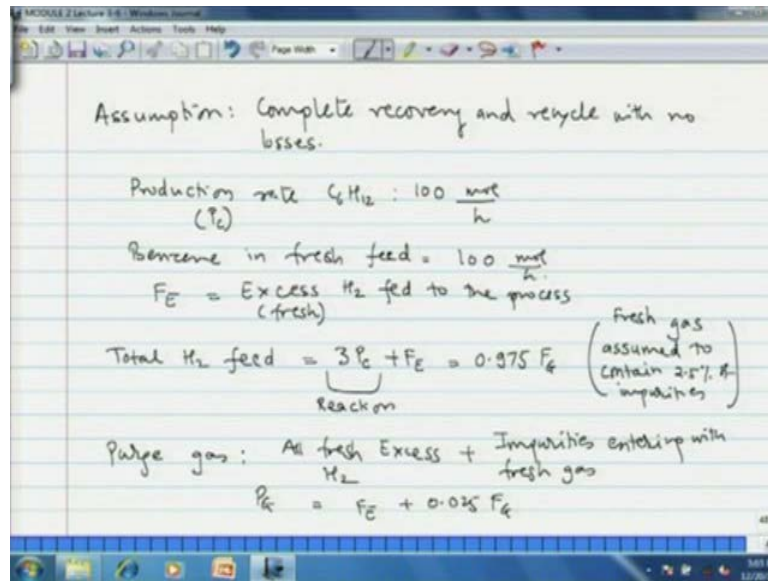 MODULE 2 Lecture 3-6 - Windows Journal
File Edit View Insert Actions Tools Help
Page Width
Assumption: Complete recovery and recycle with no
losses.
Production rate C6H12 : 100 mol/h
(Pc)
Benzene in fresh feed = 100 mol/h.
FE = Excess H2 fed to the process
(fresh)
Total H2 feed = 3Pc + FE = 0.975 FG
Reaction
(Fresh gas
assumed to
contain 2.5% of
impurities)
Purge gas: All fresh Excess + Impurities entering with
H2 fresh gas
PG = FE + 0.025 FG